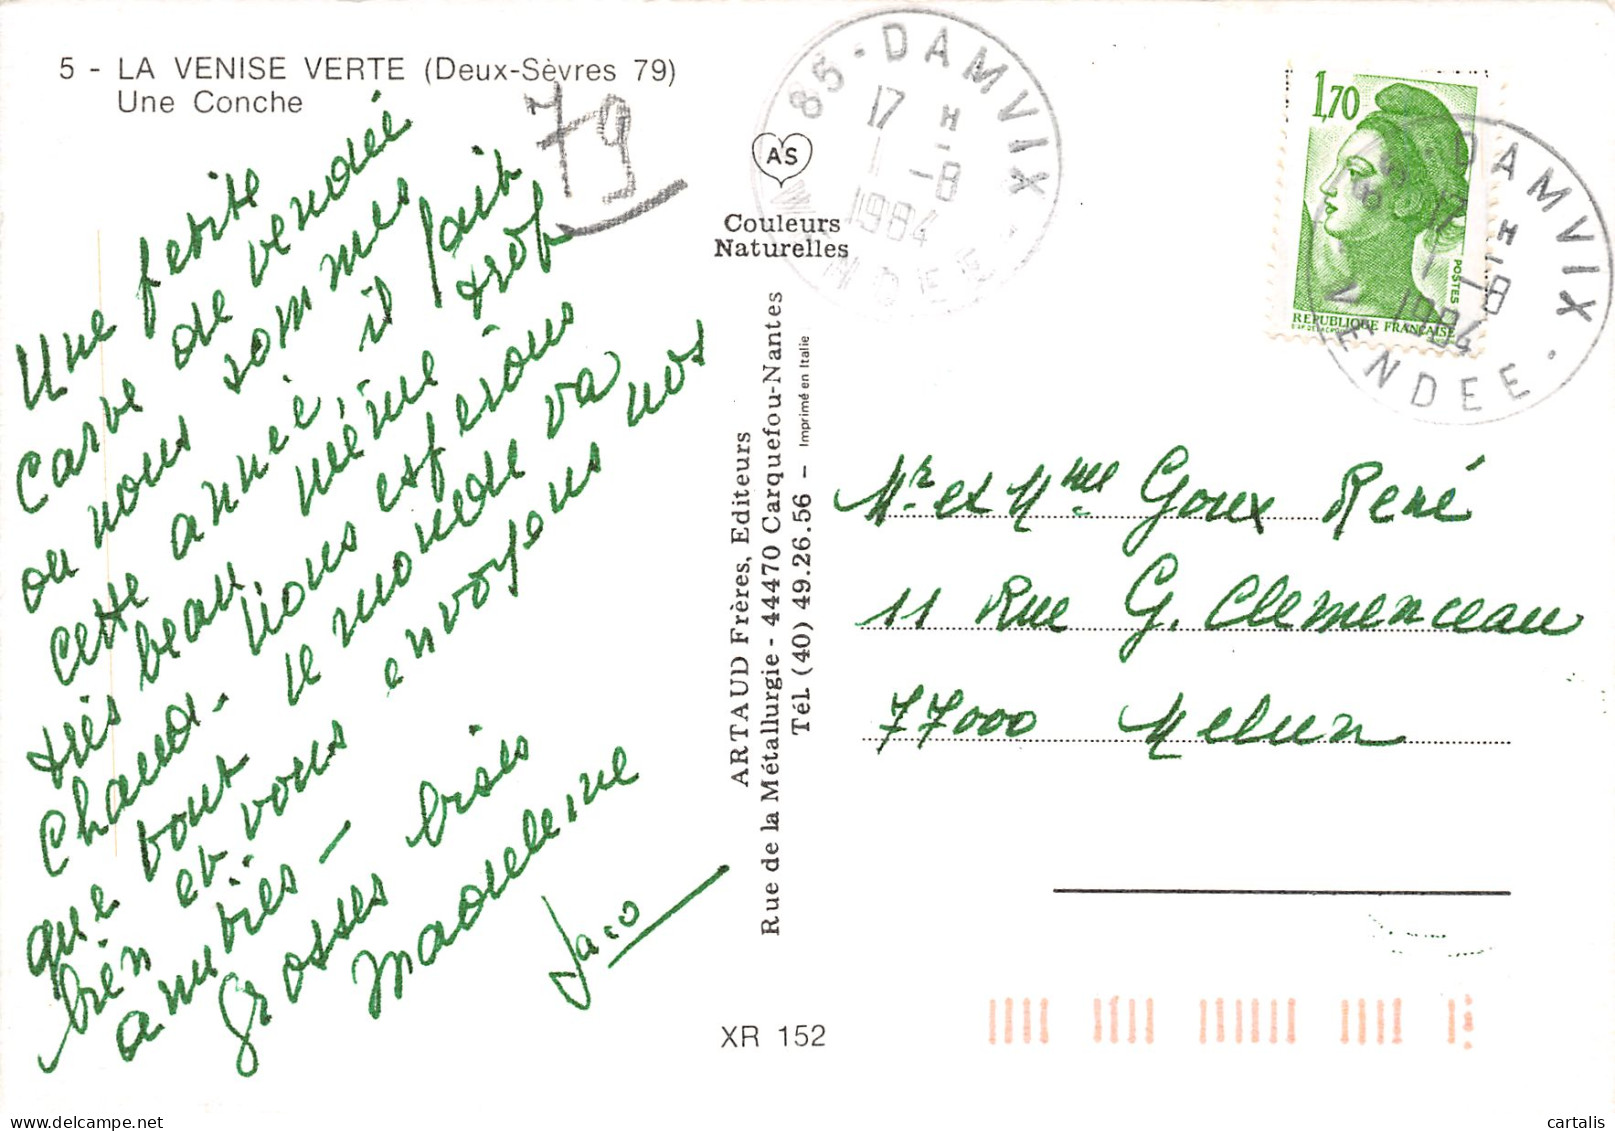 5 - LA VENISE VERTE (Deux-Sèvres 79)
Une Conche
79
Une petite
carte de vendée
ou nous sommes
cette année, il fait
très beau même trop
chaud - Nous esperons
que tout le monde va
bien et vous envoyons nos
amitiés -
Grosses bises
Madeleine
Jaco
AS
Couleurs
Naturelles
ARTAUD Frères, Editeurs
Rue de la Métallurgie - 44470 Carquefou-Nantes
Tél. (40) 49.26.56 - Imprimé en Italie
XR 152
85 - DAMVIX
17 H
1 -8
1984
VENDEE
1,70
POSTES
REPUBLIQUE FRANÇAISE
85 - DAMVIX
17 H
1 -8
1984
VENDEE
Mr et Mme Goux René
11 Rue G. Clemenceau
77000 Melun
cartalis